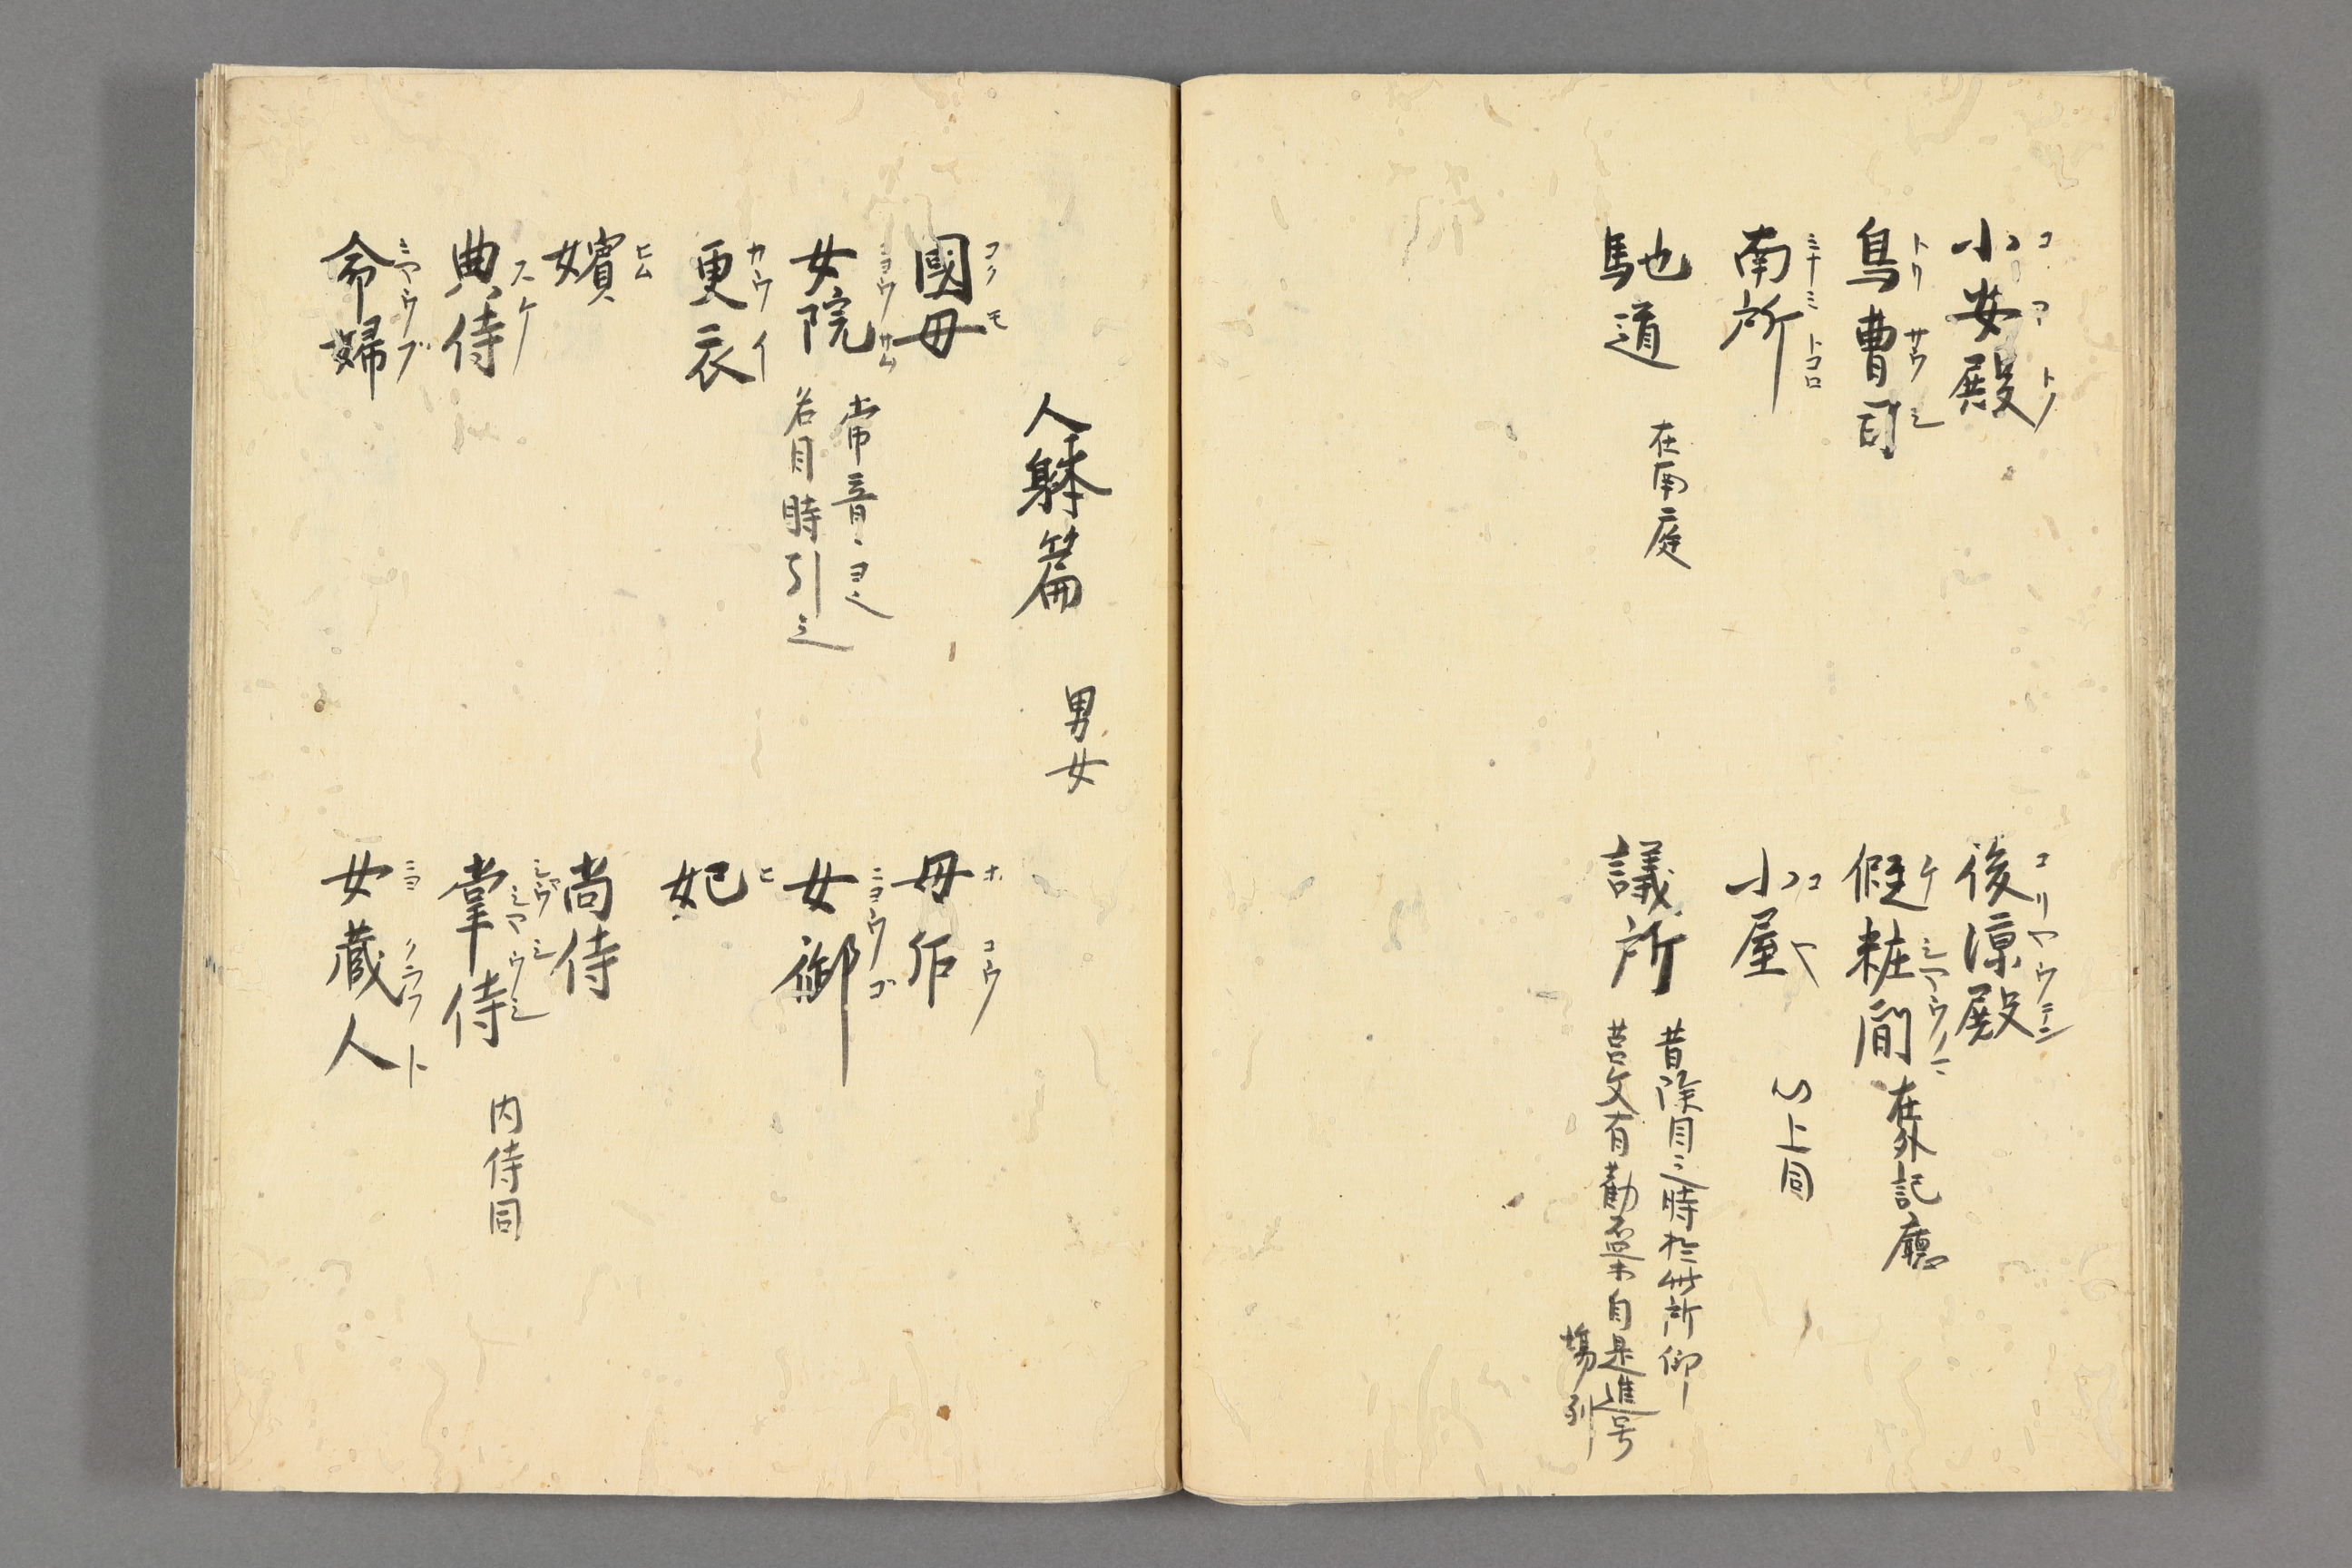 小安殿 コ アト トノ
後涼殿 コリヤウテン
鳥曹司 トリ サウシ
假粧間 ケシヤウノマ 在外記廳
南所 ミナミ トコロ
小屋 コヤ 以上同
馳道 在南庭
議所 昔除目之時於此所仰
筥文有勸盃等自是進弓
場列
人躰篇 男女
國母 コクモ
母后 ホ コウ
女院 ヨウサム 常音ニヨミ
名目時引之
女御 ニヨウゴ
更衣 カウイ
妃 ヒ
嬪 ヒム
尚侍 シヤウシ
典侍 スケ
掌侍 シヤウシ 内侍同
命婦 ミヤウブ
女蔵人 ニヨクラウト